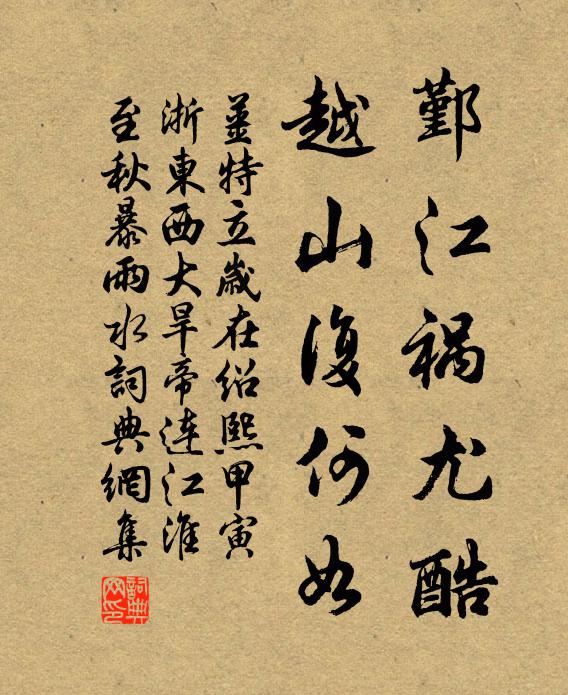 鄞江祸尤酷
越山復何如
姜特立歲在紹熙甲寅
浙東西大旱帝連江淮
至秋暴雨水詞典網集
詞典网印